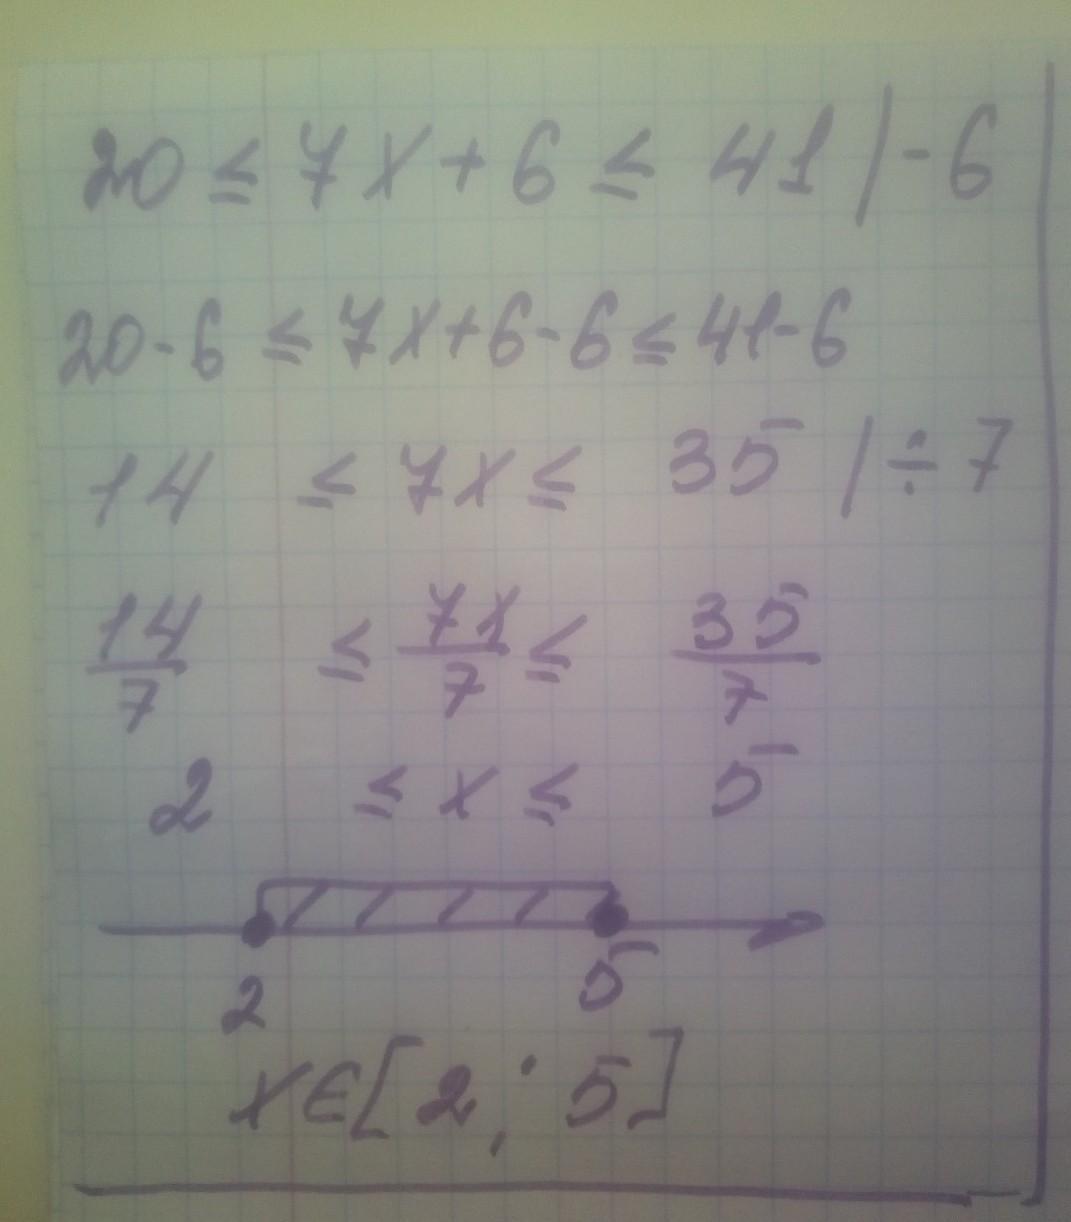 20 ≤ 7x + 6 ≤ 41 | - 6
20 - 6 ≤ 7x + 6 - 6 ≤ 41 - 6
14 ≤ 7x ≤ 35 | ÷ 7
14/7 ≤ 7x/7 ≤ 35/7
2 ≤ x ≤ 5
2 5
x∈[2; 5]